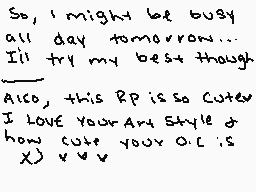 So, I might be busy
all day tomorrow...
I'll try my best though
Also, this RP is so cute
I LOVE Your Art Style &
how cute your O.C is
X) v v v